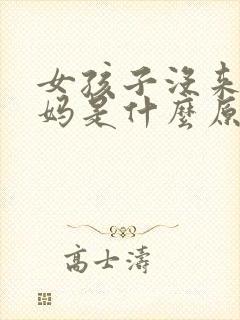 女孩子没来
妈是什麽原
高士濤